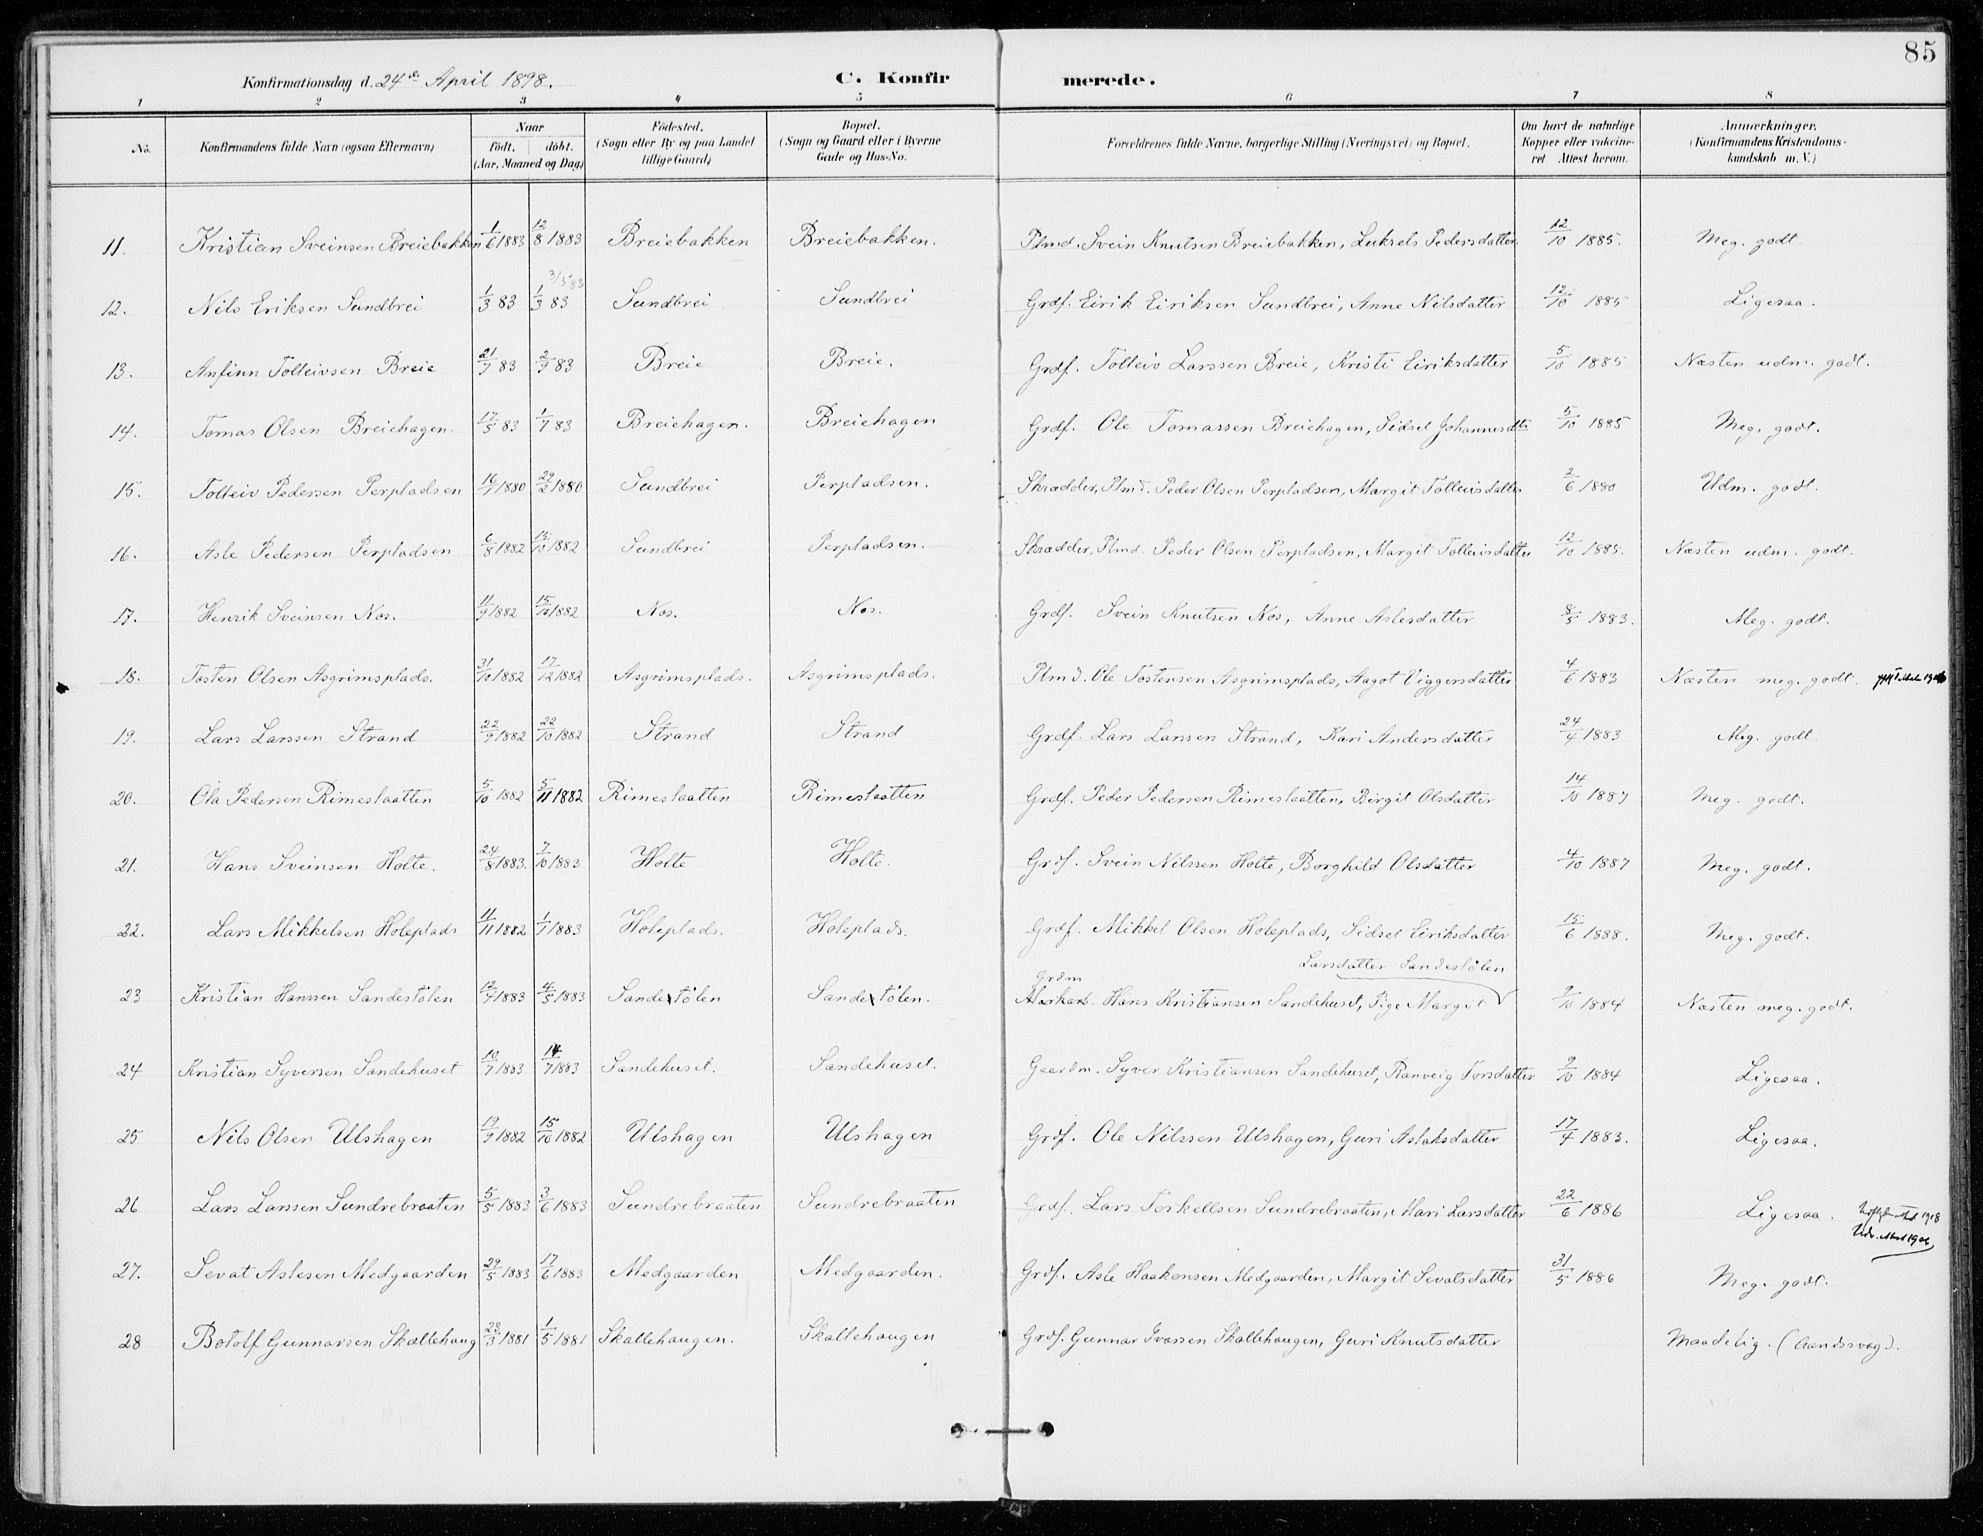 85
Konfirmationsdag d. 24de April 1898.
C. Konfirmerede.
1 2 3 4 5 6 7 8
No.
Konfirmandens fulde Navn (ogsaa Efternavn)
Naar
født. døbt.
(Aar, Maaned og Dag)
Fødested.
(Sogn eller By og paa Landet
tillige Gaard)
Bopæl.
(Sogn og Gaard eller i Byerne
Gade og Hus-No.
Forældrenes fulde Navne, borgerlige Stilling (Næringsvei) og Bopæl.
Om havt de naturlige
Kopper eller vakcine-
ret Attest herom.
Anmærkninger.
(Konfirmandens Kristendoms-
kundskab m. V.)
11. Kristian Sveinsen Breiebakken 1/6 1883 12/8 1883 Breiebakken Breiebakken. Plmd. Svein Knutsen Breiebakken, Lukrets Pedersdatter 12/10 1885. Meg. godt.
3/5 83
12. Nils Eriksen Sundbrei 1/3 83 1/3 83 Sundbrei Sundbrei Grdf. Eirik Eiriksen Sundbrei, Anne Nilsdatter 12/10 1885 Ligesaa.
13. Anfinn Tolleivsen Breie 21/7 83 2/9 83 Breie Breie. Grdf. Tolleiv Larssen Breie, Kristi Eiriksdatter 5/10 1885 Næsten udm. godt.
14. Tomas Olsen Breiehagen. 17/5 83 1/7 83 Breiehagen. Breiehagen Grdf. Ole Tomassen Breiehagen, Sidsel Johannesdtr 5/10 1885 Meg. godt.
15. Tolleiv Pedersen Perpladsen 16/1 1880 29/2 1880 Sundbrei Perpladsen. Skrædder, Plmd. Peder Olsen Perpladsen, Margit Tolleivsdatter 2/6 1880 Udm. godt.
16. Asle Pedersen Perpladsen 6/8 1882 15/10 1882 Sundbrei Perpladsen. Skrædder, Plmd. Peder Olsen Perpladsen, Margit Tolleivsdatter 12/10 1885. Næsten udm. godt.
17. Henrik Sveinsen Nos. 11/9 1882 15/10 1882 Nos. Nos. Grdf. Svein Knutsen Nos, Anne Aslesdatter 8/5 1883. Meg. godt.
18. Tosten Olsen Asgrimsplads. 31/10 1882 17/12 1882 Asgrimsplads. Asgrimsplads. Plmd. Ole Tostensen Asgrimsplads, Aagot Viggersdatter 4/6 1883 Næsten meg. godt.
19. Lars Larssen Strand 22/9 1882 22/10 1882 Strand Strand Grdf. Lars Larssen Strand, Kari Andersdatter 24/4 1883 Meg. godt
20. Ola Pedersen Rimeslaatten 5/10 1882 5/11 1882 Rimeslaatten Rimeslaatten Grdf. Peder Pedersen Rimeslaatten, Birgit Olsdatter 14/10 1887 Meg. godt.
21. Hans Sveinsen Holte. 24/8 1883. 7/10 1883 Holte Holte. Grdf. Svein Nilssen Holte, Borghild Olsdatter 4/10 1887 Meg. godt.
22. Lars Mikkelsen Holeplads 11/11 1882 1/1 1883 Holeplads. Holeplads. Grdf. Mikkel Olsen Holeplads, Sidsel Eiriksdatter 15/6 1888. Meg. godt.
Larsdatter Sandestølen
Grdm
23 Kristian Hanssen Sandestølen 12/7 1883 4/5 1883 Sandestølen Sandestølen. Hans Kristiansen Sandehuset, Pige Margit 9/10 1884 Næsten meg. godt.
24 Kristian Syversen Sandehuset 10/7 1883 14/7 1883 Sandehuset. Sandehuset. Gaardm. Syver Kristiansen Sandehuset, Ranveig Torsdatter 9/10 1884 Ligesaa.
25 Nils Olsen Ulshagen 19/9 1882 15/10 1882 Ulshagen Ulshagen Grdf. Ole Nilssen Ulshagen, Guri Aslaksdatter 17/4 1883. Ligesaa.
26 Lars Larssen Sundrebraaten 5/5 1883 3/6 1883 Sundrebraaten Sundrebraaten Grdf. Lars Torkellsen Sundrebraaten, Mari Larsdatter 22/6 1886 Ligesaa.
27. Sevat Aslesen Medgaarden 29/5 1883 17/6 1883 Medgaarden Medgaarden. Grdf. Asle Haakensen Medgaarden, Margit Sevatsdatter 31/5 1886 Meg. godt.
28 Botolf Gunnarsen Skallehaug 23/3 1881 1/5 1881 Skallehaugen. Skallehaugen Grdf. Gunnar Ivarsen Skallehaugen, Guri Knutsdatter Maadelig. (Aandssvag).